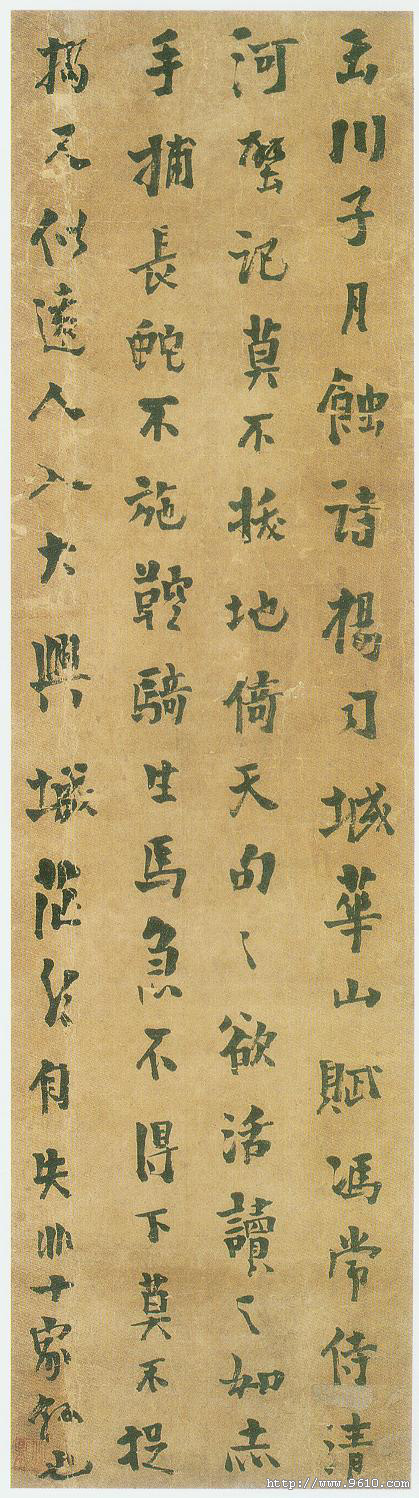 玉川子月蝕詩楊司城華山賦馮常侍清
河壁記莫不拔地倚天句〻欲活讀之如赤
手捕長蛇不施鞚騎生馬急不得下莫不捉
搦又似遠人入大興城茫然自失非十家縣也
http://www.9610.com